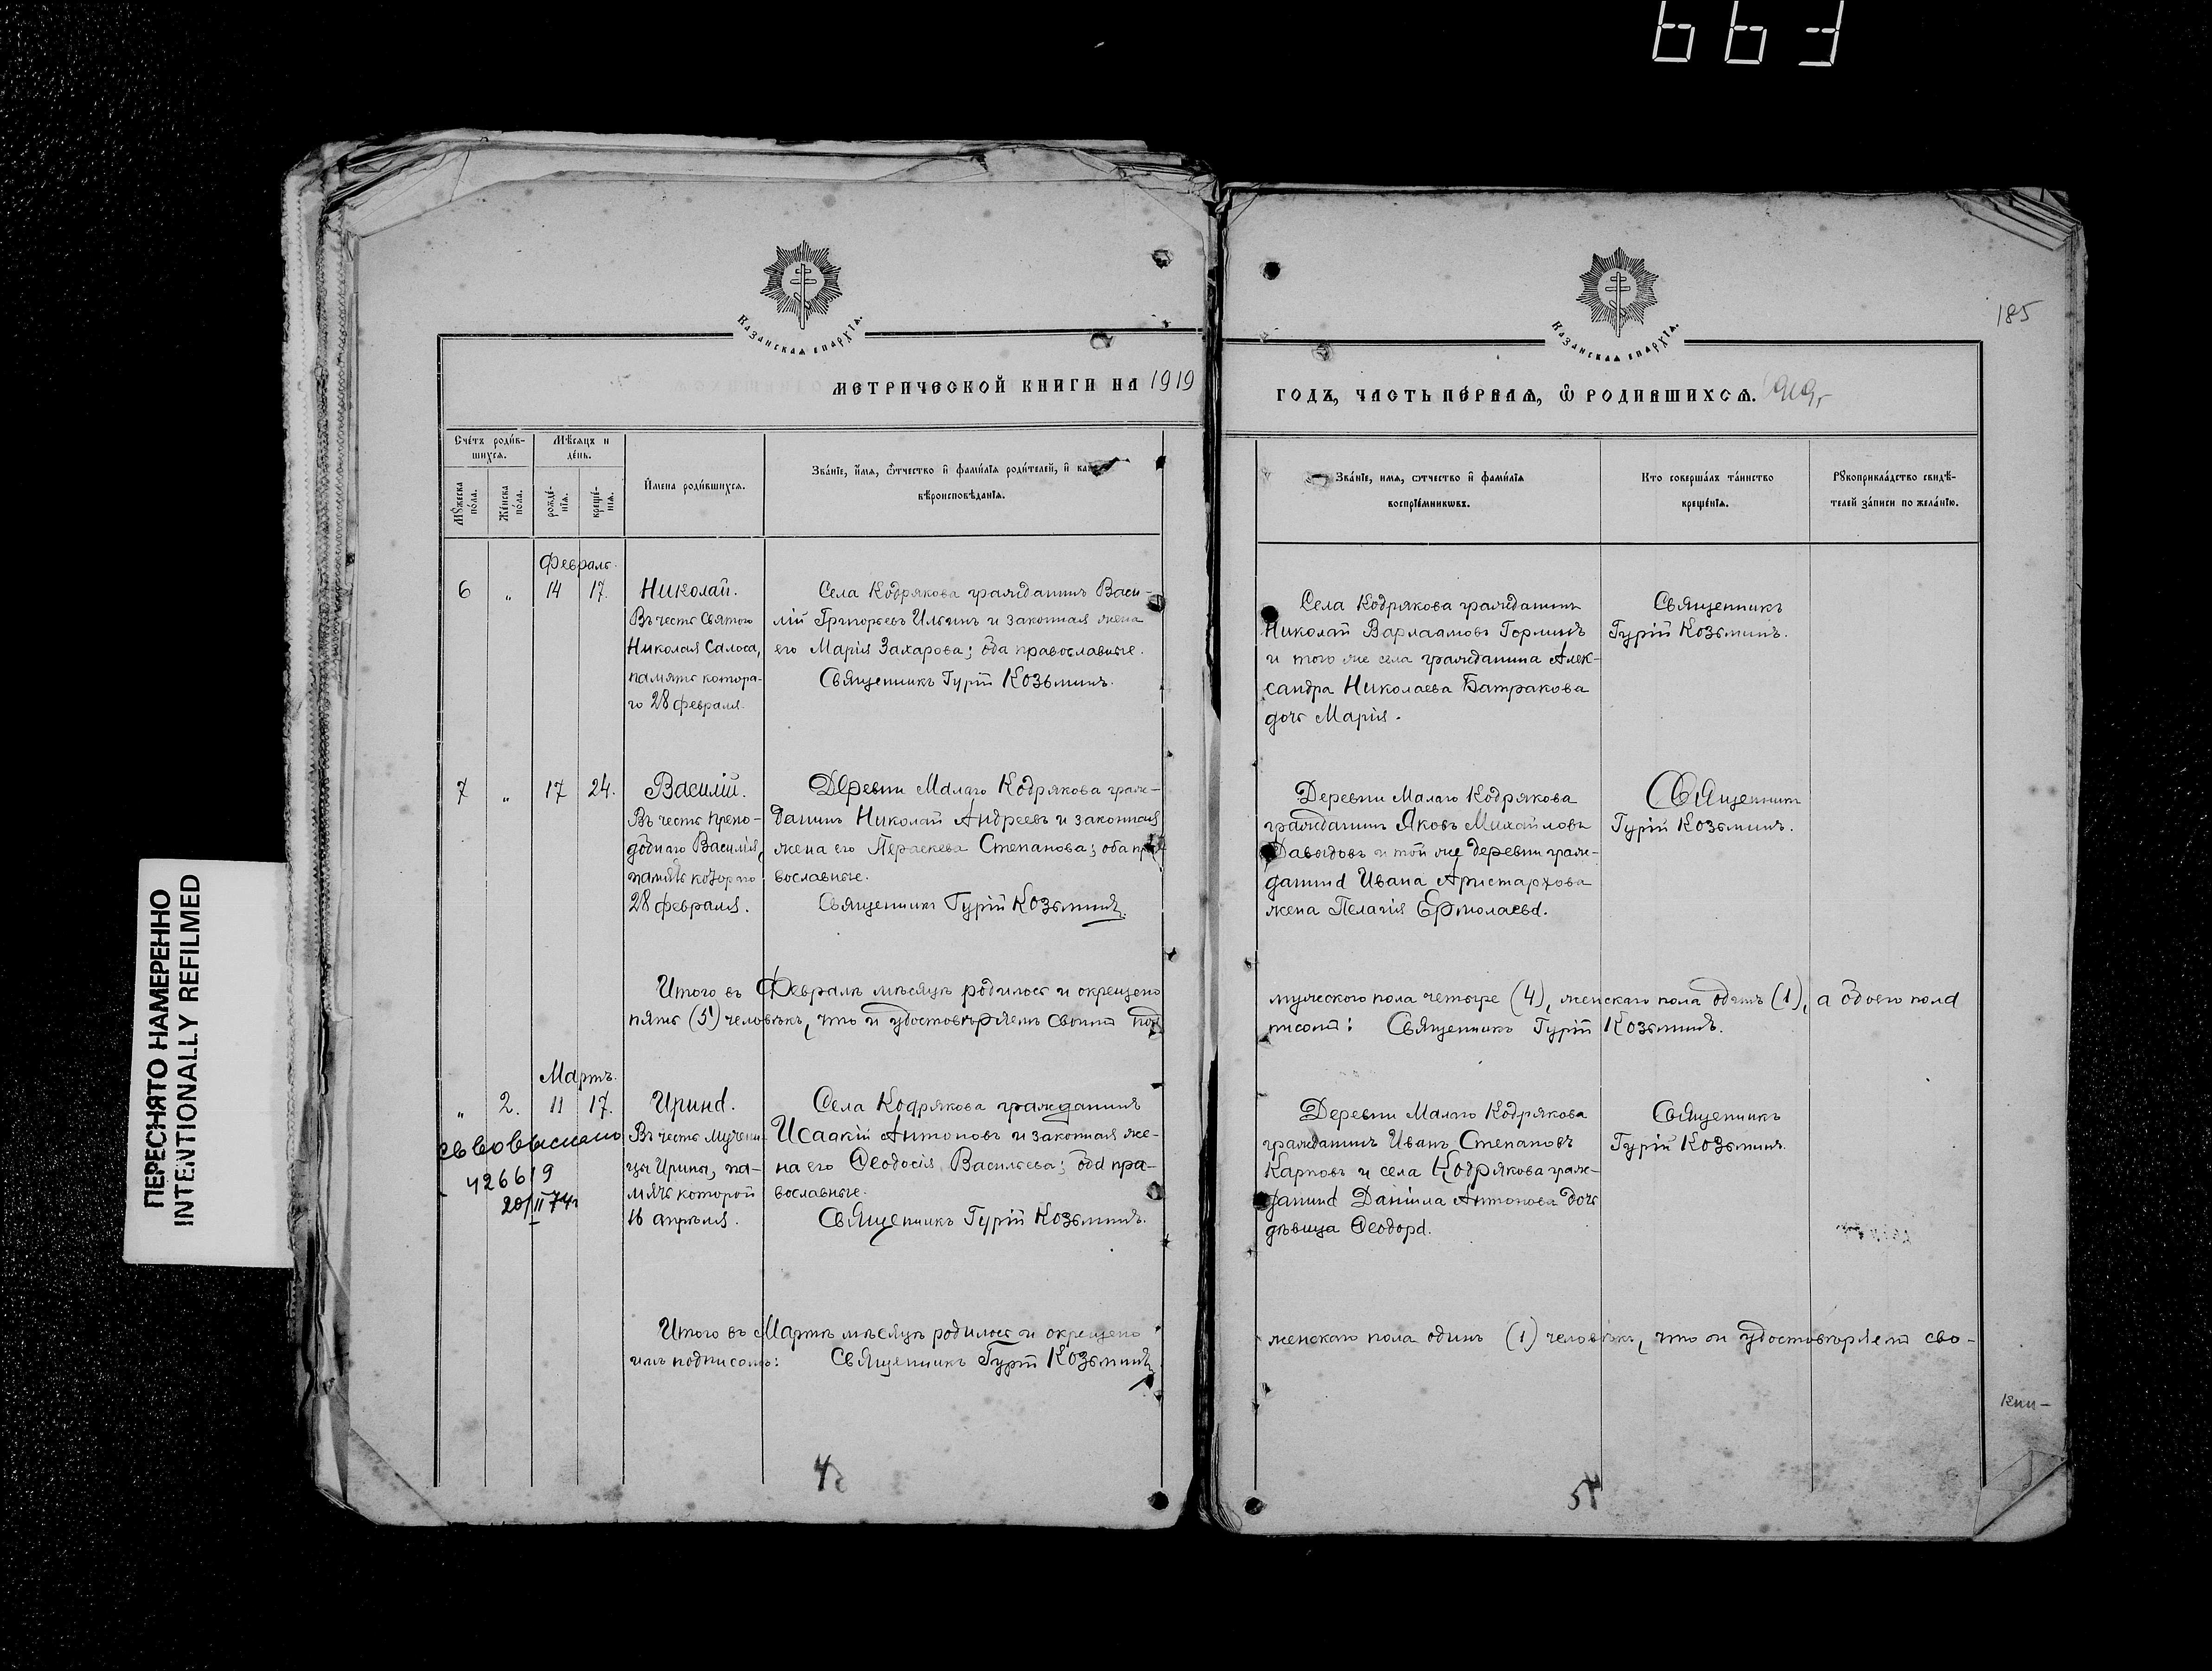 663
ПЕРЕСНЯТО НАМЕРЕННО
INTENTIONALLY REFILMED
Казанская епархїа.
МЕТРИЧЕСКОЙ КНИГИ НА 1919
Счетъ родив-
шихся.
Мѣсяцъ и
день.
Мужеска
пола.
Женска
пола.
рожде-
нія.
креще-
нія.
Имена родившихся.
Званіе, имя, отчество и фамилія родителей, и
вѣроисповѣданія.
Февраль.
6 „ 14 17. Николай.
Въ честь Святого
Николая Салоса,
память которa-
го 28 февраля.
Села Кодрякова гражданинъ Васи-
лій Григорьевъ Ильинъ и законная жена
его Марія Захарова; оба православные.
Священникъ Гурій Козьминъ.
7 „ 17 24. Василій.
Въ честь препо-
добнаго Василія,
память котораго
28 февраля.
Деревни Малаго Кодрякова граж-
данинъ Николай Андреевъ и законная
жена его Параскева Степанова; оба пра-
вославные.
Священникъ Гурій Козьминъ.
Итого въ Февралѣ мѣсяцѣ родилось и окрещено
пять (5) человѣкъ, что и удостовѣряемъ своимъ под
Мартъ.
„ 2. 11 17. Ирина.
Въ честь мучени-
цы Ирины, па-
мять которой
16 апрѣля.
Села Кодрякова гражданинъ
Исаакій Антоновъ и законная же-
на его Ѳеодосія Васильева; оба пра-
вославные.
Священникъ Гурій Козьминъ.
св во выслано
426619
20/II 74г
Итого въ Мартѣ мѣсяцѣ родилось и окрещено
имъ подписомъ: Священникъ Гурій Козьминъ
4
185
Казанская епархїа.
ГОДЪ, ЧАСТЬ ПЕРВАЯ, Ѿ РОДИВШИХСЯ. 1919г
Званіе, имя, отчество и фамилія
воспріемниковъ.
Кто совершалъ таинство
крещенія.
Рукоприкладство свидѣ-
телей записи по желанію.
Села Кодрякова гражданинъ
Николай Варлаамовъ Горшинъ
и того же села гражданина Алек-
сандра Николаева Батракова
дочь Марія.
Священникъ
Гурій Козьминъ.
Деревни Малаго Кодрякова
гражданинъ Яковъ Михайловъ
Давыдовъ и той же деревни граж-
данина Ивана Аристархова
жена Пелагія Ермолаева.
Священникъ
Гурій Козьминъ.
мужского пола четыре (4), женскаго пола одинъ (1), а обоего пола
писомъ: Священникъ Гурій Козьминъ.
Деревни Малаго Кодрякова
гражданинъ Иванъ Степановъ
Карповъ и села Кодрякова граж-
данина Даніила Антонова дочь
дѣвица Ѳеодора.
Священникъ
Гурій Козьминъ.
женскаго пола одинъ (1) человѣкъ, что и удостовѣряемъ сво-
кни-
5